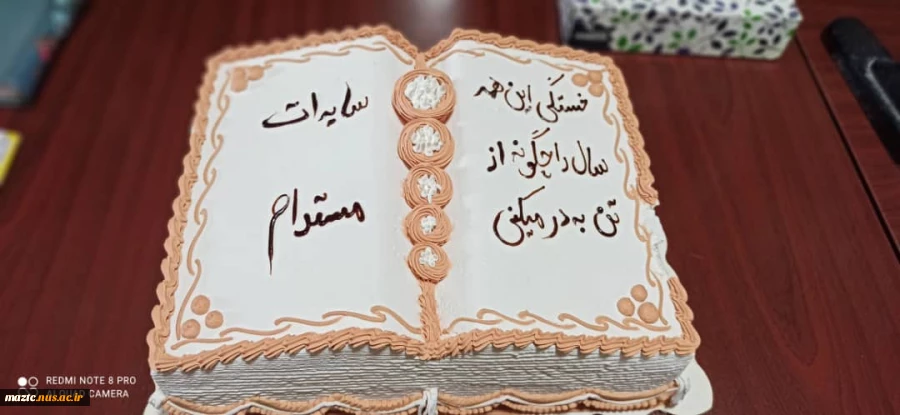 خستگی این همه
سال را چگونه از
تن به در میکنی
سایه ات
مستدام
REDMI NOTE 8 PRO
AI QUAD CAMERA
maztc.nus.ac.ir